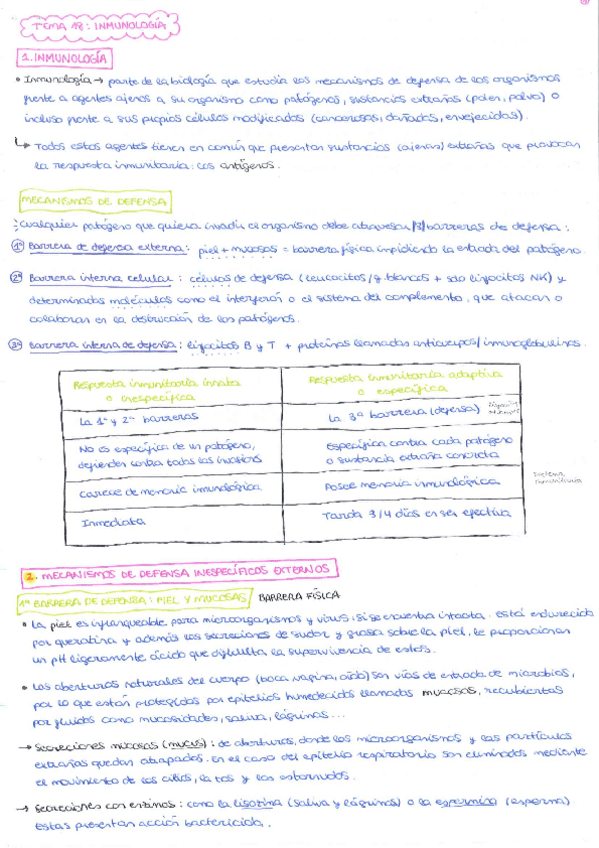 TEMA 18: INMUNOLOGÍA
1. INMUNOLOGÍA
• Inmunología → parte de la biología que estudia los mecanismos de defensa de los organismos
frente a agentes ajenos a su organismo como patógenos, sustancias extrañas (polen, polvo) o
incluso frente a sus propias células modificadas (cancerosas, dañadas, envejecidas).
↳ Todos estos agentes tienen en común que presentan sustancias (ajenas) extrañas que provocan
la respuesta inmunitaria: los antígenos.
MECANISMOS DE DEFENSA
Cualquier patógeno que quiera invadir el organismo debe atravesar /3/ barreras de defensa:
1ª Barrera de defensa externa: piel + mucosas = barrera física impidiendo la entrada del patógeno.
2ª Barrera interna celular: células de defensa (leucocitos/g. blancos + solo linfocitos NK) y
determinadas moléculas como el interferón o el sistema del complemento, que atacan o
colaboran en la destrucción de los patógenos.
3ª Barrera interna de defensa: linfocitos B y T + proteínas llamadas anticuerpos/inmunoglobulinas.
Respuesta inmunitaria innata
o inespecífica
Respuesta inmunitaria adaptiva
o específica
La 1ª y 2ª barreras
La 3ª barrera (defensa)
No es específica de un patógeno,
defienden contra todos los invasores
Específica contra cada patógeno
o sustancia extraña concreta
Sistema
inmunitario
Carece de memoria inmunológica
Posee memoria inmunológica
Inmediata
Tarda 3/4 días en ser efectiva
2. MECANISMOS DE DEFENSA INESPECÍFICOS EXTERNOS
1ª BARRERA DE DEFENSA: PIEL Y MUCOSAS BARRERA FÍSICA
• La piel es infranqueable para microorganismos y virus, si se encuentra intacta. Está endurecida
por queratina y además las secreciones de sudor y grasa sobre la piel, le proporcionan
un pH ligeramente ácido que dificulta la supervivencia de estos.
• Las aberturas naturales del cuerpo (boca, vagina, oído) son vías de entrada de microbios,
por lo que están protegidas por epitelios humedecidos llamados mucosas, recubiertas
por fluidos como mucosidades, saliva, lágrimas...
→ Secreciones mucosas (mucus): de aberturas, donde los microorganismos y las partículas
extrañas quedan atrapados. En el caso del epitelio respiratorio son eliminados mediante
el movimiento de los cilios, la tos y los estornudos.
→ Secreciones con enzimas: como la lisozima (saliva y lágrimas) o la espermina (esperma)
estas presentan acción bactericida.